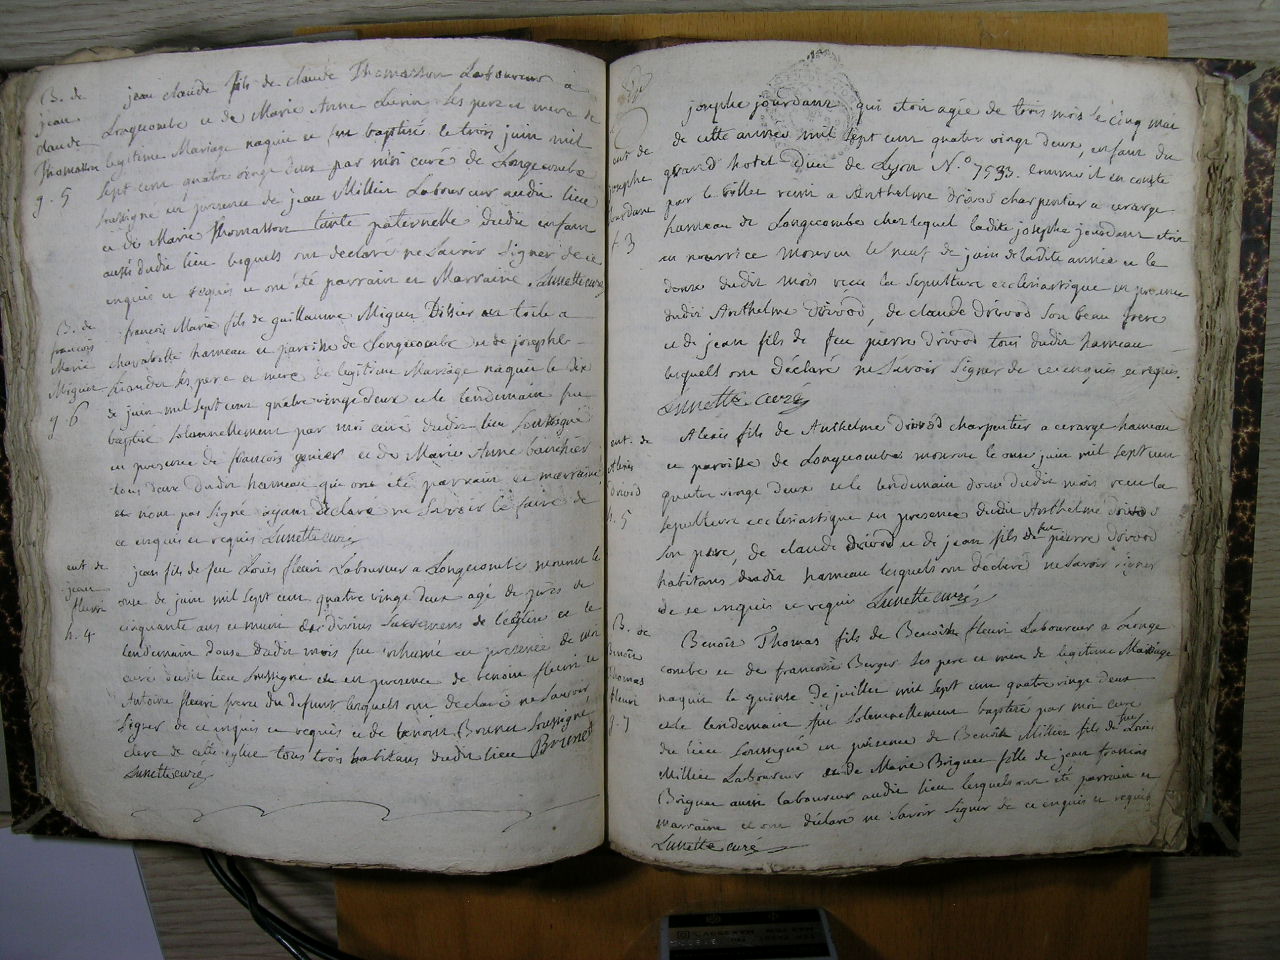 B. de
jean
claude
Thomasson
g. 5
jean claude fils de claude Thomasson Laboureur a
Longecombe et de Marie Anne Les pere et mere de
legitime Mariage naquit et fut baptisé le trois juin mil
sept cent quatre vingt deux par moi curé de Longecombe
soussigné en presence de jean Millien Laboureur audit lieu
et de Marie Thomasson tante paternelle dudit enfant
aussi dudit lieu lesquels ont declaré ne savoir signer de ce
enquis et requis et ont été parrain et Marraine. Lunette curé
B. de
françois
Marie
Miguet
g. 6
françois Marie fils de guillaume Miguet Tissier en toile a
hameau et paroisse de Longecombe et de josephe
ses pere et mere de legitime Mariage naquit le dix
de juin mil sept cent quatre vingt deux et le lendemain fut
baptisé solamnellement par moi curé dudit lieu soussigné
en presence de françois et de Marie Anne
tous deux dudit hameau qui ont été parrain et marraine
et nont pas signé ayant declaré ne savoir le faire de
ce enquis et requis Lunette curé
ent. de
jean
fleuri
h. 4
jean fils de feu Louis fleuri Laboureur a Longecombe mourut le
onze de juin mil sept cent quatre vingt deux agé de près de
cinquante ans et muni des divins sacremens de l'eglise et le
lendemain douze dudit mois fut inhumé en presence de moi
curé dudit lieu soussigné et en presence de benoit fleuri et
Antoine fleuri freres du defunt lesquels ont declaré ne savoir
signer de ce enquis et requis et de benoit Brunet soussigné
clerc de cette eglise tous trois habitans dudit lieu Brunet
Lunette curé
ent. de
josephe
jourdane
f. 3
josephe jourdane qui etoit agée de trois mois le cinq mai
de cette année mil sept cent quatre vingt deux, enfant du
grand hotel Dieu de Lyon N.° 7533. comme il en conste
par le billet remi a Anthelme drivod charpentier a cerarge
hameau de Longecombe chez lequel ladite josephe jourdane etoit
en nourrice mourut le neuf de juin de ladite année et le
douze dudit mois recu la sepulture ecclesiastique en presence
dudit Anthelme drivod, de claude drivod son beau frere
et de jean fils de feu pierre drivod tous dudit hameau
lesquels ont déclaré ne savoir signer de ce enquis et requis.
Lunette curé
ent. de
Alexis
drivod
h. 5
Alexis fils de Anthelme drivod charpentier a cerarge hameau
et paroisse de Longecombe mourut le onze juin mil sept cent
quatre vingt deux et le lendemain douze dudit mois recu la
sepulture ecclesiastique en presence dudit Anthelme drivod
son pere, de claude drivod et de jean fils de feu pierre drivod
habitans dudit hameau lesquels ont déclaré ne savoir signer
de ce enquis et requis Lunette curé
B. de
Benoit
Thomas
fleuri
g. 7
Benoit Thomas fils de Benoit fleuri Laboureur a Longe
combe et de françoise Berger ses pere et mere de legitime Mariage
naquit le quinze de juillet mil sept cent quatre vingt deux
et le lendemain fut solamnellement baptisé par moi curé
du lieu soussigné en présence de Benoit Millien fils de feu Louis
Millien Laboureur et de Marie Briguet fille de jean françois
Briguet aussi laboureur audit lieu lesquels ont été parrain et
marraine et ont déclaré ne savoir signer de ce enquis et requis
Lunette curé